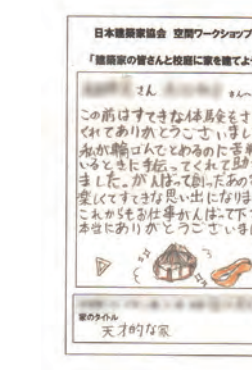 日本建築家協会 空間ワークショップ
「建築家の皆さんと校庭に家を建てよ
さん
さんへ
この前はすてきな体験会をさ
くれてありがとうございまし
私が輪ゴムでとめるのに苦戦
いるときに手伝ってくれて助か
ました。がんばって創ったあの
楽しくてすてきな思い出になりま
これからもお仕事がんばって下
本当にありがとうございま
家のタイトル
天才的な家